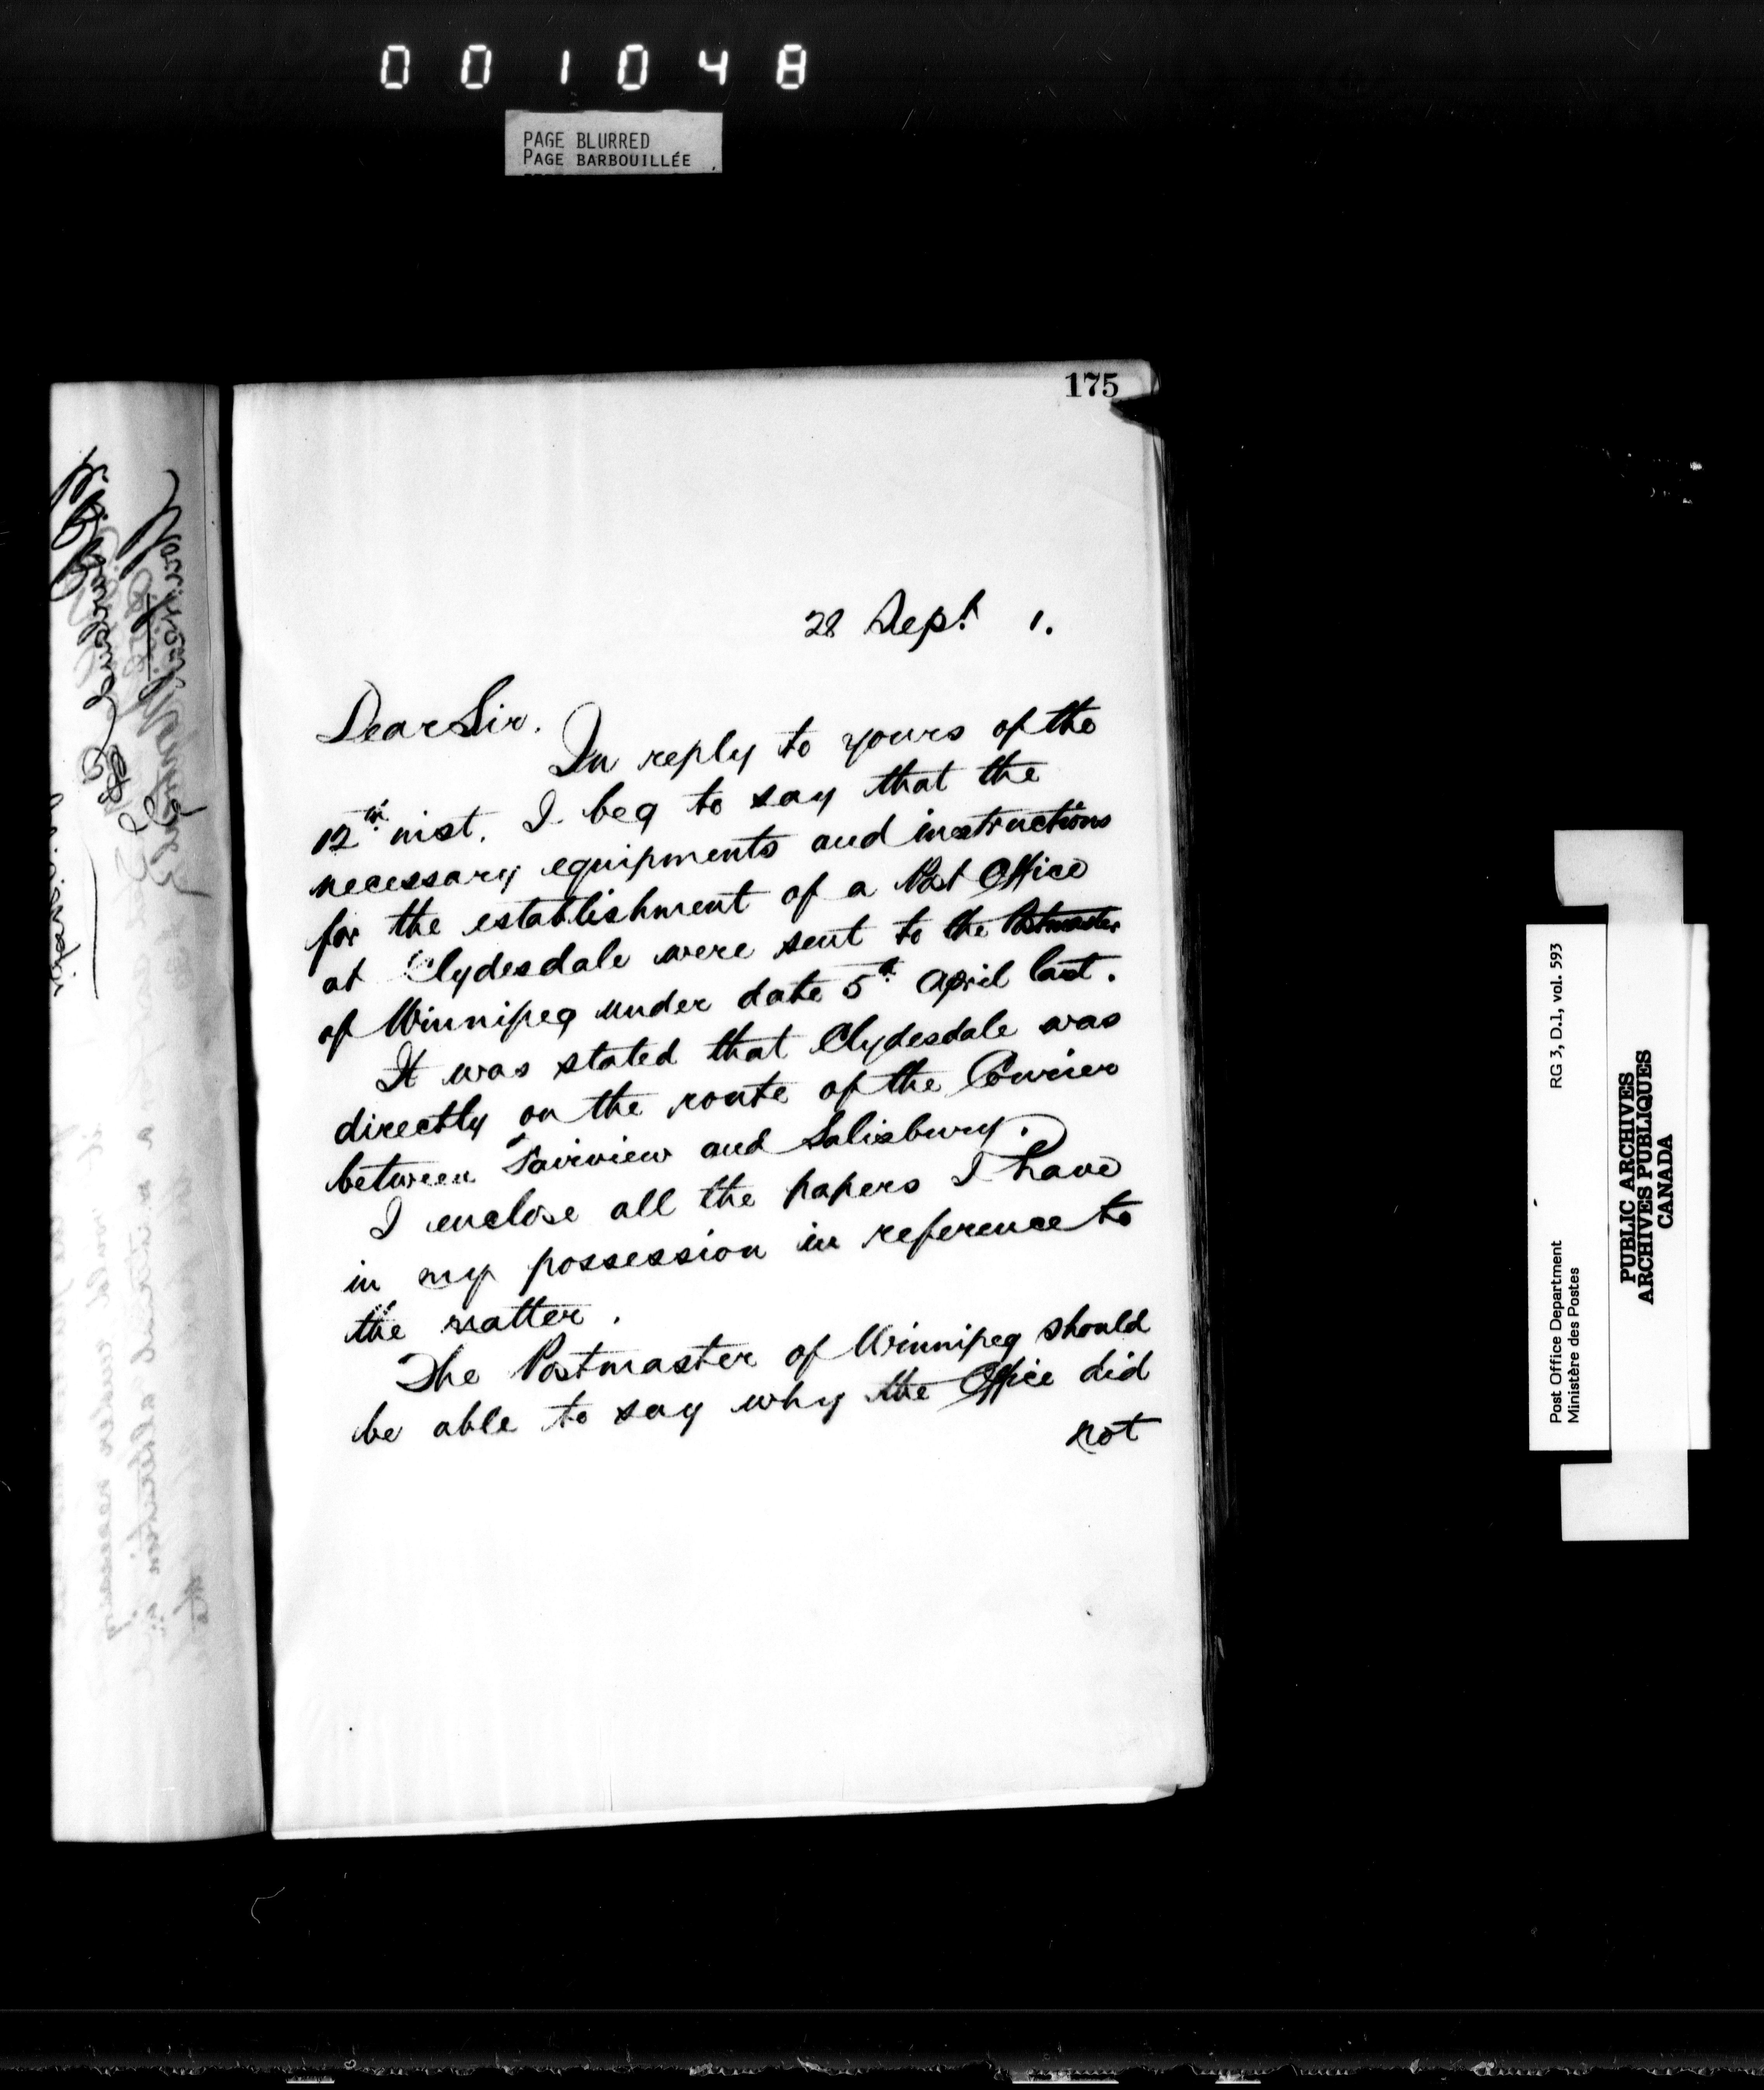 001048
PAGE BLURRED
PAGE BARBOUILLÉE
175
28 Sept. 1.
Dear Sir.
In reply to yours of the
12th inst. I beg to say that the
necessary equipments and instructions
for the establishment of a Post Office
at Clydesdale were sent to the Postmaster
of Winnipeg under date 5th April last.
It was stated that Clydesdale was
directly on the route of the Courier
between Fairview and Salisbury.
I enclose all the papers I have
in my possession in reference to
the matter.
The Postmaster of Winnipeg should
be able to say why the Office did
not
Post Office Department
Ministère des Postes
RG 3, D.1, vol. 593
PUBLIC ARCHIVES
ARCHIVES PUBLIQUES
CANADA